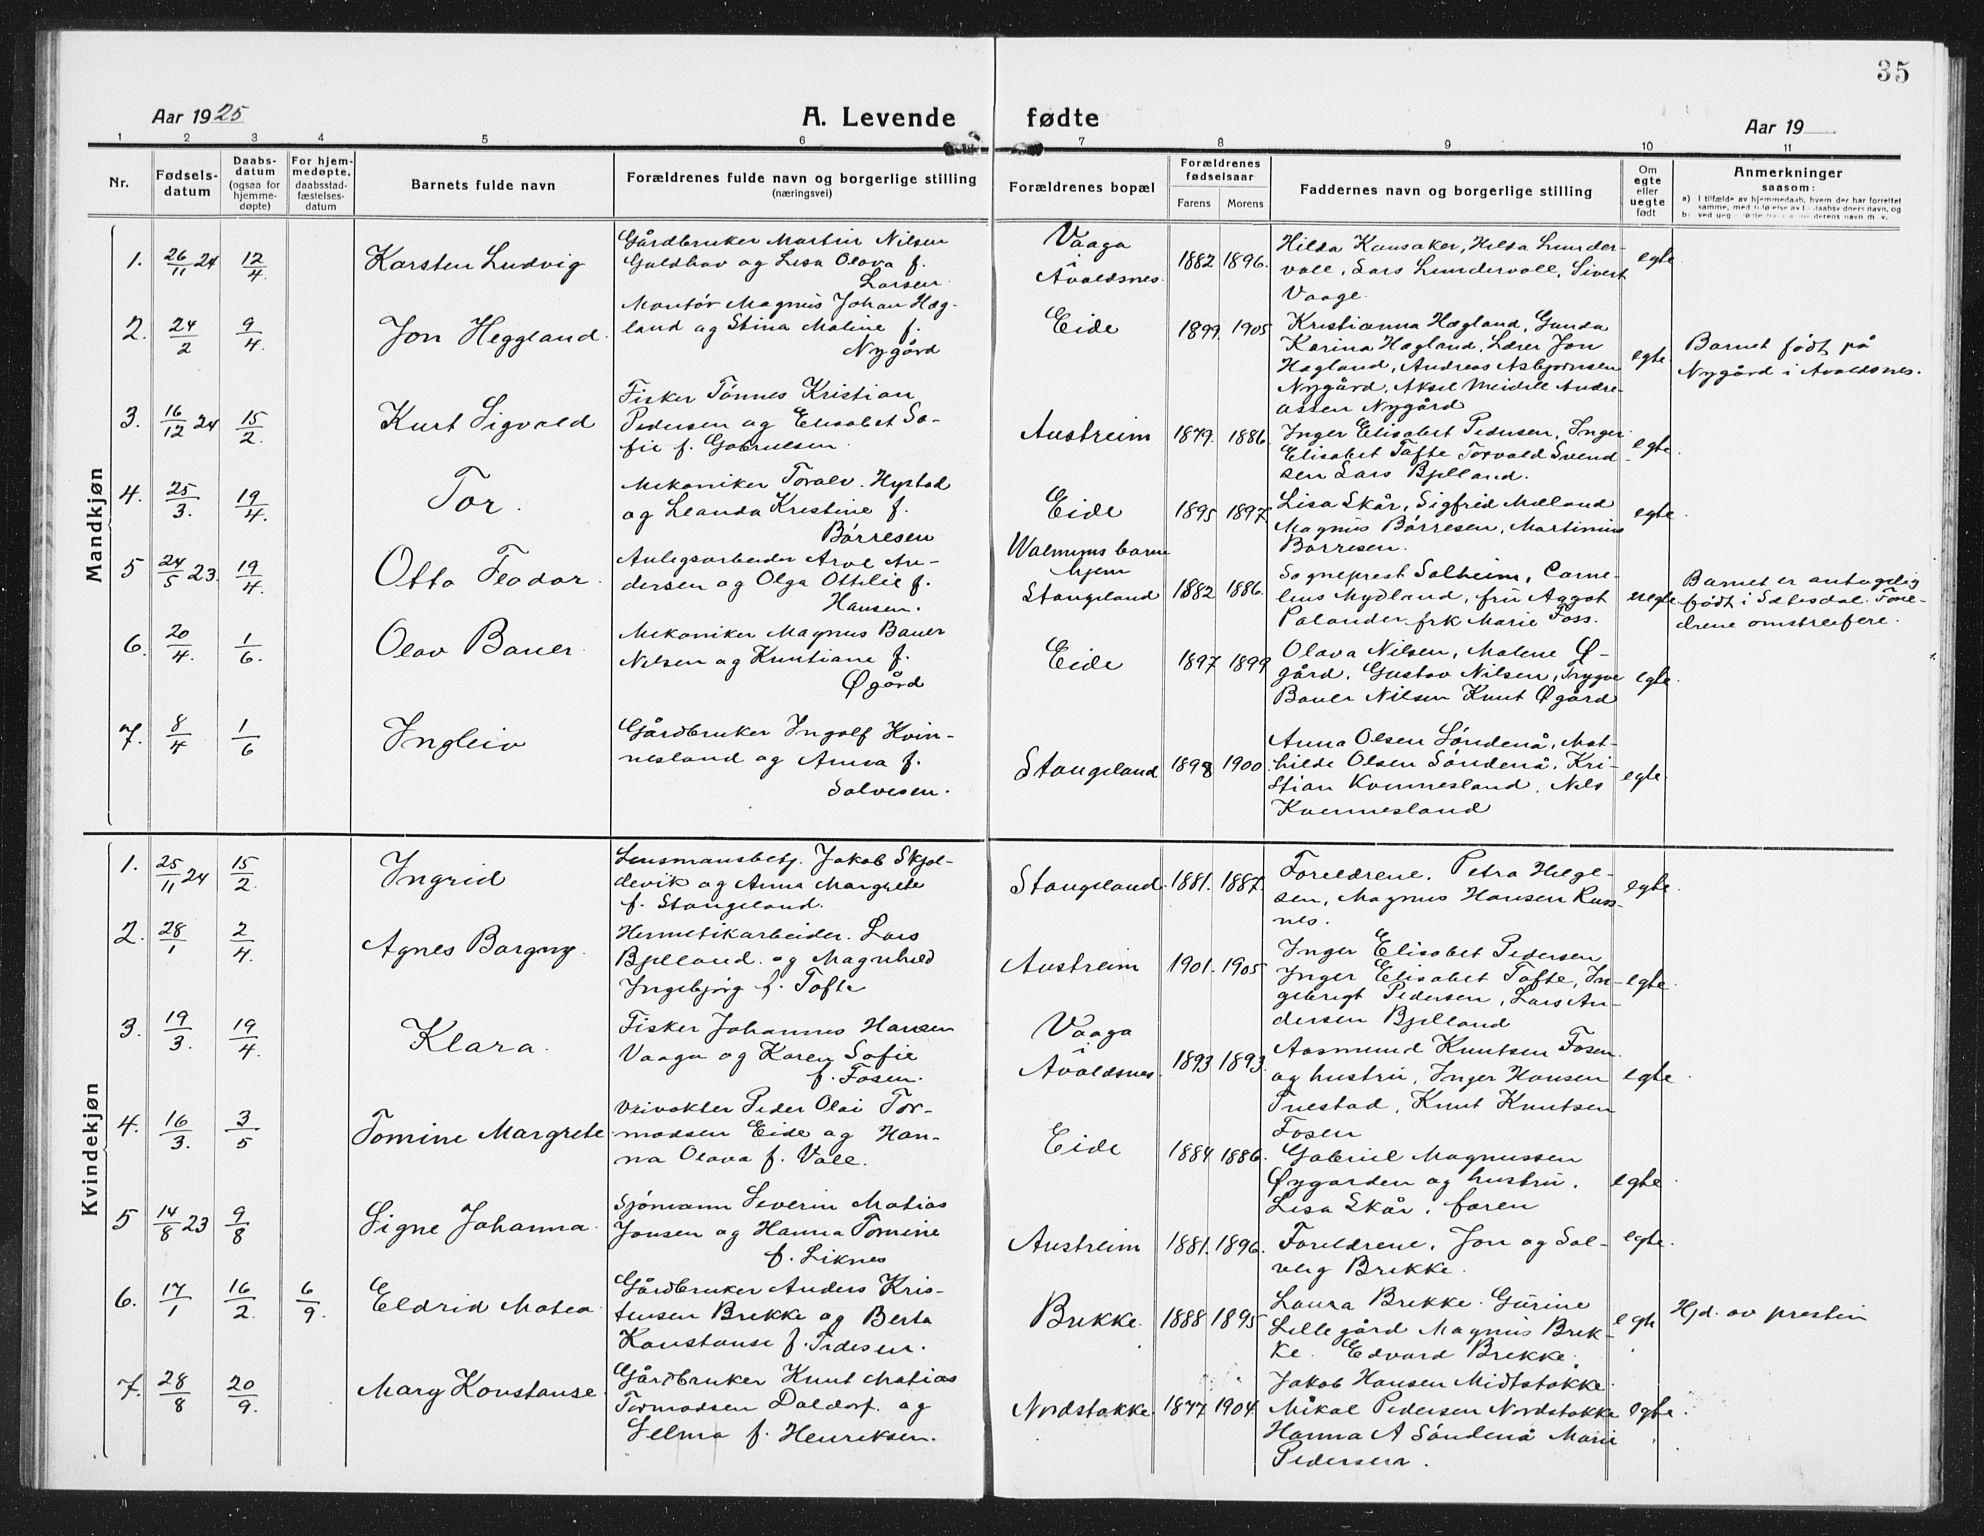 35
Aar 1925
A. Levende fødte
Aar 19
1 2 3 4 5 6 7 8 9 10 11
Nr.
Fødsels-
datum
Daabs-
datum
(ogsaa for
hjemme-
døpte)
For hjem-
medøpte,
daabsstad-
fæstelses-
datum
Barnets fulde navn
Forældrenes fulde navn og borgerlige stilling
(næringsvei)
Forældrenes bopæl
Forældrenes
fødselsaar
Farens Morens
Faddernes navn og borgerlige stilling
Om
egte
eller
uegte
født
Anmerkninger
saasom:
a) I tilfælde av hjemmedaab, hvem der har forrettet
samme, med
Mandkjøn
1. 26/11 24 12/4 Karsten Ludvig
Gårdbruker Martin Nilsen
Galdhav og Lisa Olava f.
Larsen
Vaaga
i
Avaldsnes
1882 1896.
Hilda Kausaker, Hilda Lunder-
voll, Lars Lundervoll, Sivert
Vaage.
egte
2. 24/2 9/4. Jon Heggland.
Montør Magnus Johan Hæg-
land og Stina Malene f.
Nygård
Eide
1899. 1905
Kristianna Hægland, Gunda
Karina Hægland, Lærer Jon
Hægland, Andreas Asbjørnsen
Nygård, Aksel Meidell Andre-
assen Nygård
egte.
Barnet født på
Nygård i Avaldsnes.
3. 16/12 24 15/2. Kurt Sigvald
Fisker Tønnes Kristian
Pedersen og Elisabet So-
fie f. Gabrielsen.
Austreim
1879. 1886.
Inger Elisabet Pedersen, Inger
Elisabet Tafte Torvald Svend-
sen Lars Bjelland.
egte.
4. 25/3. 19/4. Tor.
Mekaniker Toralv. Hystad
og Leanda Kristine f.
Børresen
Eide
1895 1897
Lisa Skår, Sigfred Mæland
Magnus Børresen, Martinius
Børresen.
egte.
5 24/5 23. 19/4. Otto Feodor.
Anlegsarbeider Arve An-
dersen og Olga Ottilie f.
Hansen.
hjem
Stangeland
1882 1886.
Sogneprest Solheim, Corne-
lius Mydland, fru Aagot
Palander frk Marie Foss.
uegte
Barnet er antagelig
født i Setesdal. Fore-
drene omstreifere.
6. 20/4. 1/6. Olav Bauer.
Mekaniker Magnus Bauer
Nilsen og Kristiane f.
Øgård
Eide
1897 1899
Olava Nilsen, Malene Ø-
gård, Gustav Nilsen, Trygve
Bauer Nilsen Knut Øgård
egte.
7. 8/4 1/6 Ingleiv
Gårdbruker Ingolf Kvin-
nesland og Anna f.
Salvesen.
Stangeland
1898 1900
Anna Olsen Søndenå, Mat-
hilde Olsen Søndenå, Kri-
stian Kvinnesland, Nils
Kvinnesland
egte.
Kvindekjøn
1. 25/11 24 15/2. Ingrid
Lensmansbetj. Jakob Skjol-
devik og Anna Margrete
f. Stangeland.
Stangeland.
1881. 1887.
Foreldrene, Petra Helge-
sen, Magnus Hansen Russ-
nes.
egte.
2. 28/1 2/4. Agnes Borgny.
Hermetikarbeider. Lars
Bjelland. og Magnhild
Ingebjørg f. Tofte
Austreim
1901. 1905
Inger Elisabet Pedersen
Inger Elisabet Tofte, In-
gebrigt Pedersen, Lars An-
dersen Bjelland
egte.
3. 19/3. 19/4. Klara.
Fisker Johannes Hansen
Vaaga og Karen Sofie
f. Fosen.
Vaaga
i
Avaldsnes.
1893 1893.
Aasmund Knutsen Fosen.
og hustru, Inger Hansen
Tuestad, Knut Knutsen
Fosen
egte
4. 16/3. 3/5 Tomine Margrete
Vrivakter Peder Olai Tor-
madsen Eide og Han-
na Olava f. Vålle.
Eide
1884 1886.
Gabriel Magnussen
Øygarden og hustru.
Lisa Skår, faren
egte
5 14/8 23 9/8 Signe Johanna.
Sjømann Severin Matias
Jonsen og Hanna Tomine
f. Liknes
Austreim
1881. 1896.
Foreldrene, Jon og Sol-
veig Brekke.
egte.
6. 17/1 16/2. 6/9. Eldrid Matea.
Gårdbruker Anders Kris-
tensen Brekke og Berta
Konstanse f. Pedersen.
Brekke.
1888 1895
Laura Brekke. Gurine
Lillegård Magnus Brek-
ke. Edvard Brekke.
egte
Hjd. av presten
7. 28/8 20/9. Mary Konstanse.
Gårdbruker Knut Matias
Tormodsen Daldorf. og
Selma f. Henriksen.
Nordstokke.
1877 1904.
Jakob Hansen Midtstokke.
Mikal Pedersen Nordstokke
Hanna A Søndenå Marie
Pedersen.
egte.